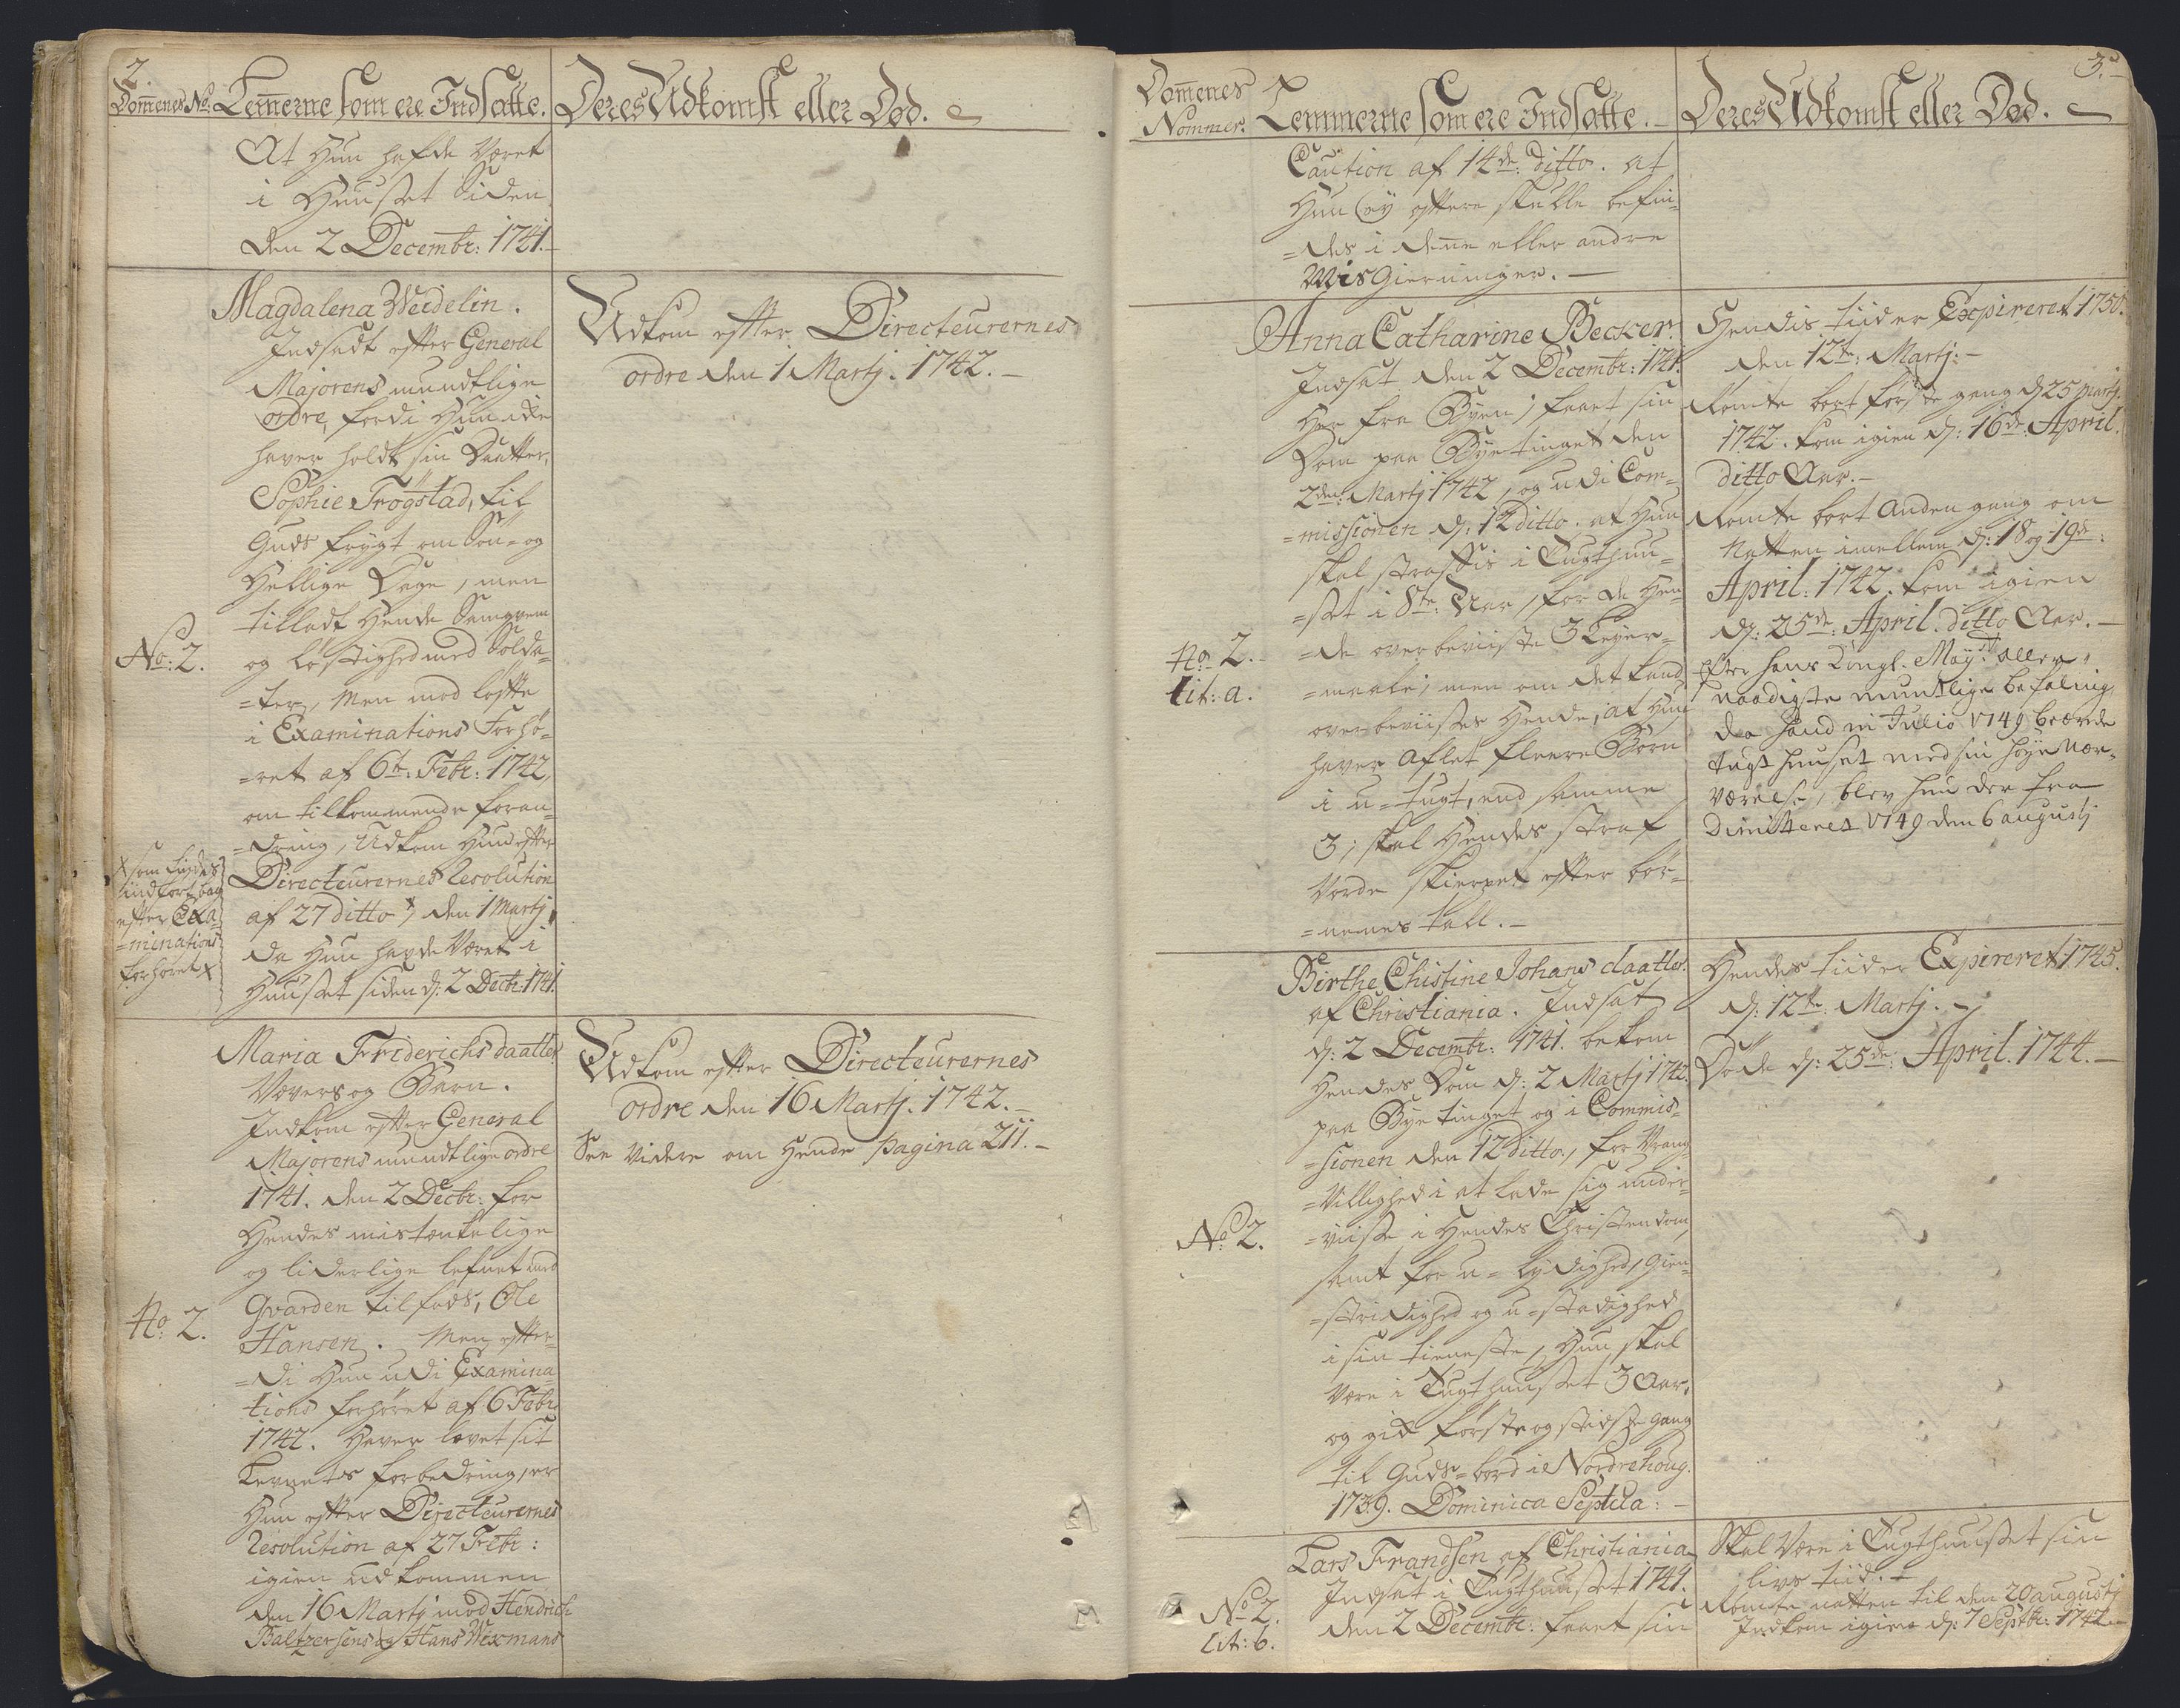 2.
Dom̅enes No. Lem̅erne som ere Indsatte. Deres Udkomst eller Død.
At Hun hafde Været
i Huusset Siden
den 2 Decembr: 1741.
Magdalena Weidelin.
Indsadt efter General
Majorens mundtlige
ordre, fordi Hun icke
haver holdt sin Daatter,
Sophie Trögstad, til
Guds frygt om Søn- og
Hellige Dage, men
tilladt Hende Samqvem
og løstighed med Solda-
=ter, Men mod løffte
i Examinations Forhö-
=ret af 6te: Febr: 1742,
om tilkommende foran-
=dring, Udkom Hun efter
Directeurernes Resolution
af 27 ditto x, den 1 Martj,
da Hun hafde Været i
Huusset siden d: 2 Decbr: 1741.
No: 2.
x som findes
indført bag
efter Exa-
=minations
forhøret x
Udkom efter Directeurernes
ordre den 1 Martj. 1742.
Maria Friderichsdaatter
Wævers og Barn.
Indkom efter General
Majorens mundtlige ordre
1741. den 2 Decbr: for
Hendes mistænkelige
og liderlige lefnet med
Gvarden til fods, Ole
Hansen. Men efter-
=di Hun udi Examina-
tions forhöret af 6 Febr
1742. Haver lovet sit
Levnets forbedring, er
Hun efter Directeurernes
Resolution af 27 Febr:
igien udkommen
den 16 Martj mod Hendrich
Baltzersens og Hans Wexmans
No: 2.
Udkom efter Directeurernes
ordre den 16 Martj. 1742.
See videre om Hende pagina 211.
3.
Dom̅enes
Nommer. Lemmerne som ere Indsatte. Deres Udkomst eller Død.
Caution af 14de: ditto. at
Hun ey oftere skulle befin-
=des i denne eller andre
Misgierninger.
Anna Catharine Becker.
Indsat den 2 Decembr: 1741.
Her fra Byen; faaet sin
Dom paa Byetinget den
2den: Martj 1742, og udi Com-
=missionen d: 12 ditto. at Hun
skal straffes i Tugthuu-
=set i 8te: Aar, for de Hen-
=de overbeviiste 3 Leyer-
=maale; men om det kand
overbeviises Hende, at Hun
haver Aflet fleere Børn
i u-tugt, end samme
3; skal Hendes straf
Vorde skierpet efter bør-
=nenes tall.
No. 2.
lit: a.
Hendis tiider Expireret 1750.
den 12te: Martj:
Romte bort første gang d 25 Martj.
1742. kom igien d: 16de April.
ditto Aar.
Romte bort Anden gang om
Natten imellem d: 18 og 19de:
April: 1742. kom igien
d: 25de: April. ditto Aar.
Efter hans Kongl. May:ts aller
naadigste mundlige befaling
da hand in Julio 1749 beærede
tugthuuset med sin høye nær-
værelse, blev hun der fra
Dimitteret 1749 den 6 augustj
Birthe Christine Johans daatter.
af Christiania. Indsat
d: 2 Decembr: 1741. bekom
Hendes Dom d: 2 Martj 1742.
paa Bye tinget og i Commis-
=sionen den 12 ditto, for Vrang-
=Villighed i at lade sig under-
=viise i Hendes Christendom,
samt for u-lydighed, Gien-
=stridighed og u-stadighed
i sin tieneste, Hun skal
Være i Tugthuusset 3 Aar,
og gik første og sidste Gang
til Guds-bord i Nordrehoug.
1739. Dominica Septua:
No. 2.
Hendes tiider Expireret 1745.
d: 12te: Martj.
Døde d: 25de: April. 1744.
Lars Frandsen af Christiania
Indsat i Tugthuusset 1741.
den 2 Decembr: faaet sin
No. 2.
lit: b.
Skal Være i Tugthuusset sin
livs tiid.
Romte natten til den 20 augustj
Indkom igien d: 7 Septbr: 1742.